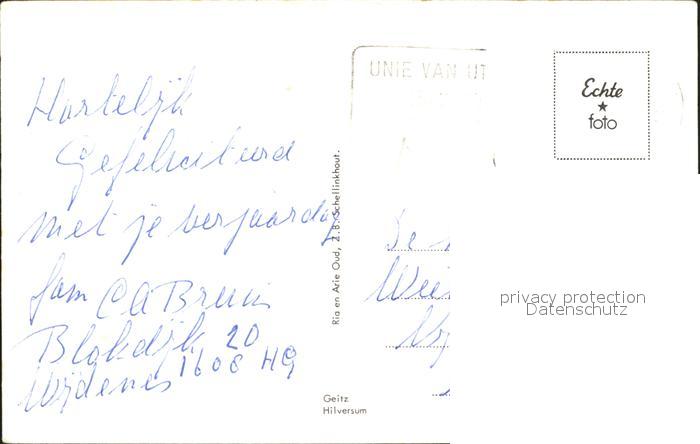 Hartelijk
Gefeliciteerd
met je verjaardag
fam C A Bruin
Blokdijk 20
Wijdenes 1608 HG
Ria en Arie Oud, Z.B. Schellinkhout.
Geitz
Hilversum
UNIE VAN UT
Echte
foto
privacy protection
Datenschutz